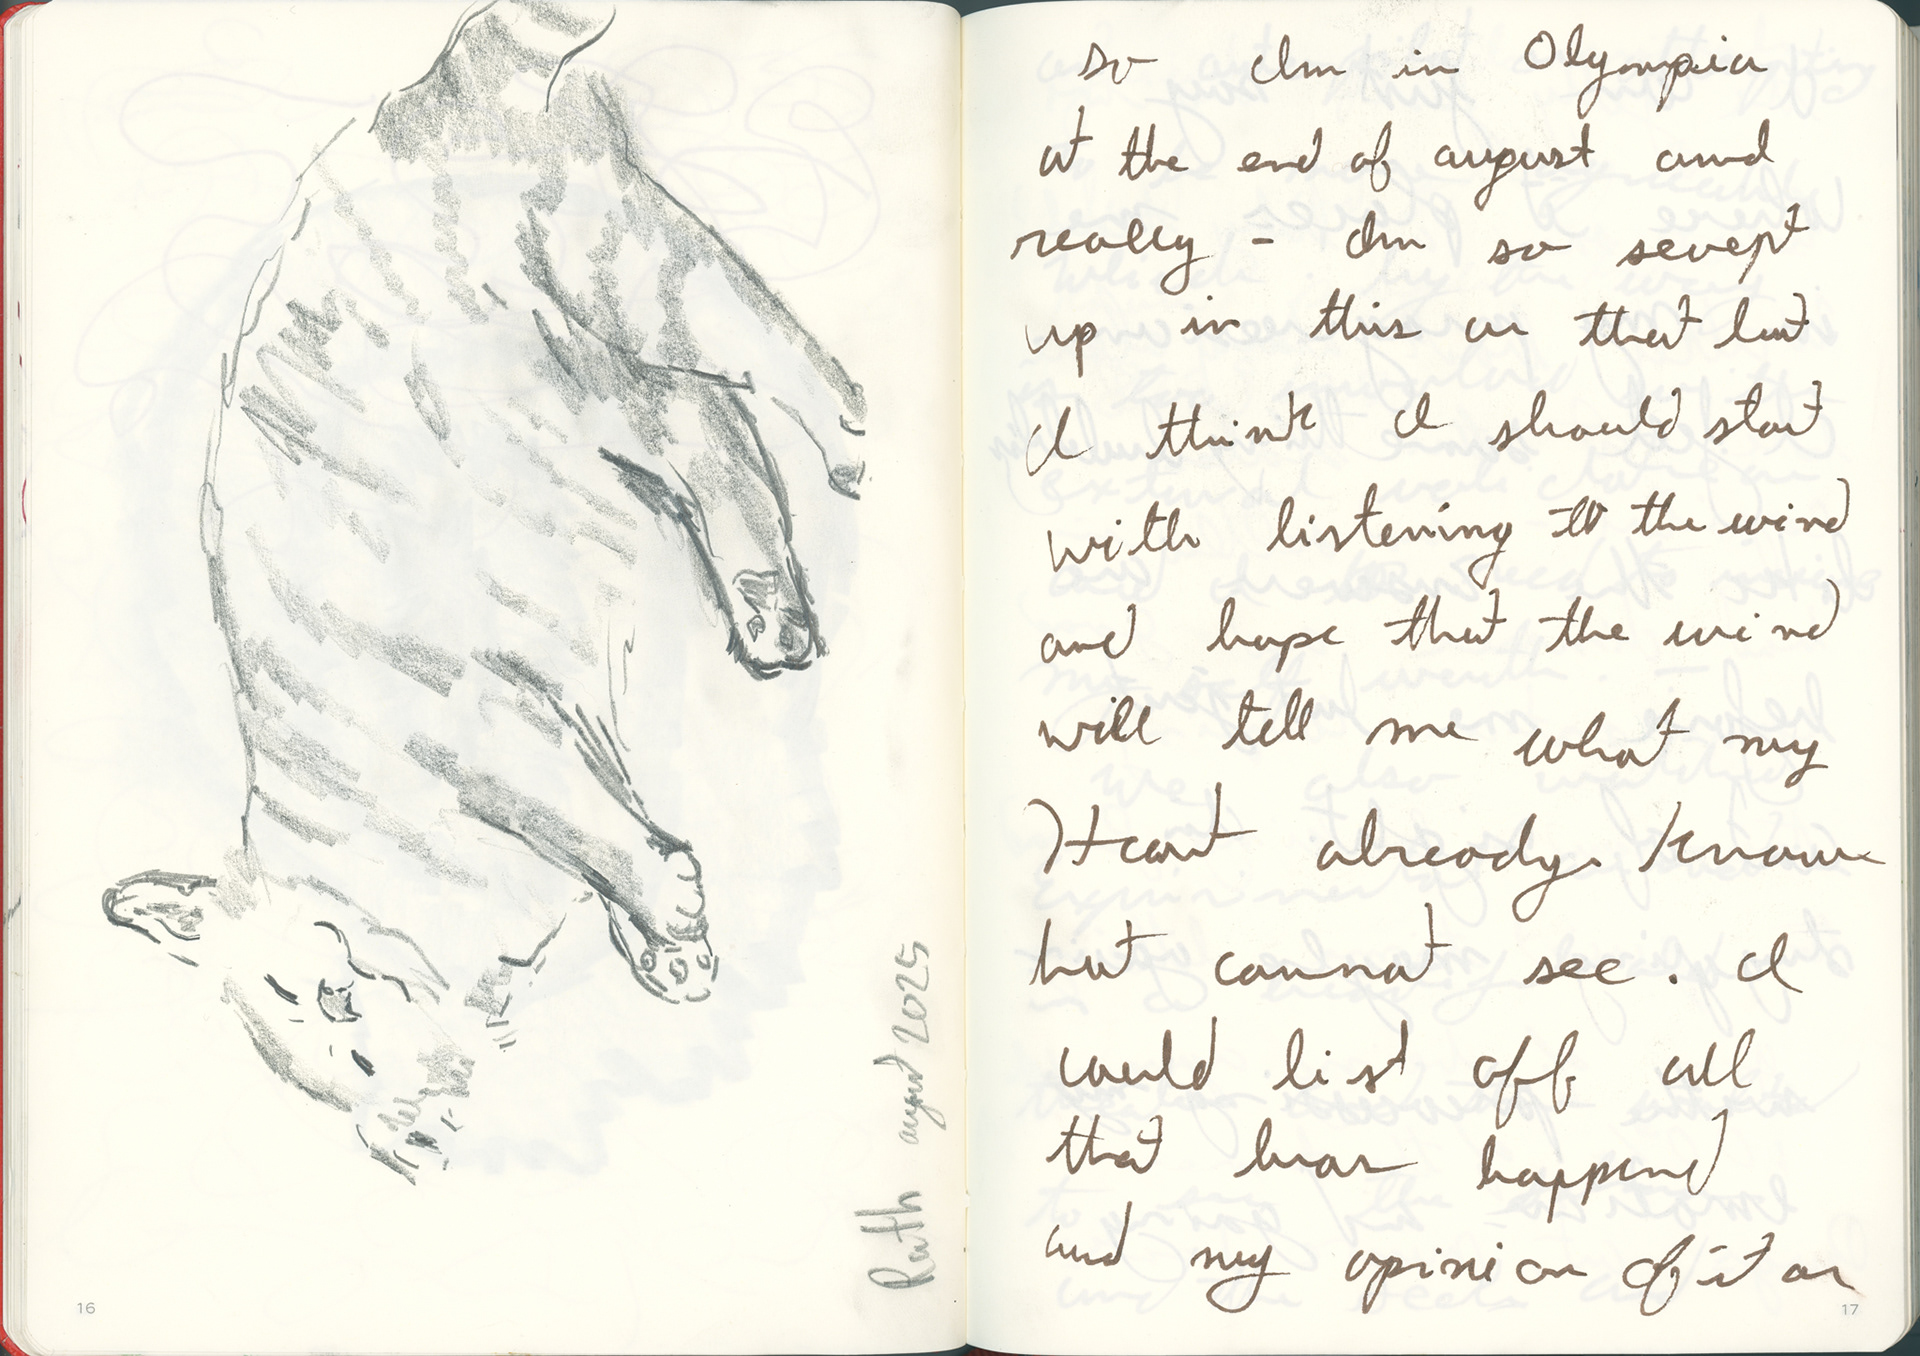 Ruth august 2025
16
so Im in Olympia
at the end of august and
really - Im so swept
up in this or that but
I think I should start
with listening to the wind
and hope that the wind
will tell me what my
Heart already knows
but cannot see. I
could list off all
that has happend
and my opinion of it or
17